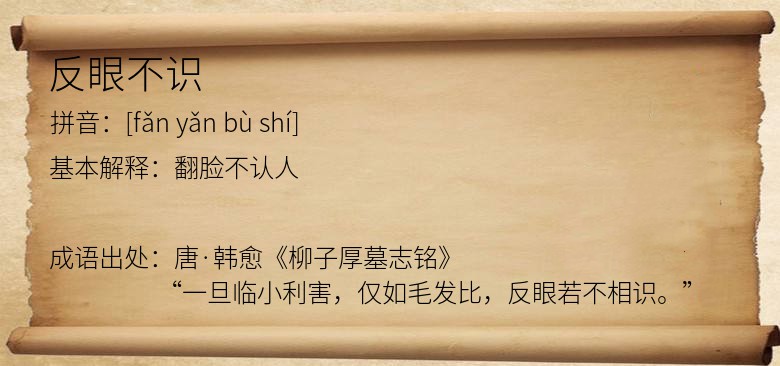 反眼不识
拼音：[fǎn yǎn bù shí]
基本解释：翻脸不认人
成语出处：唐·韩愈《柳子厚墓志铭》
“一旦临小利害，仅如毛发比，反眼若不相识。”